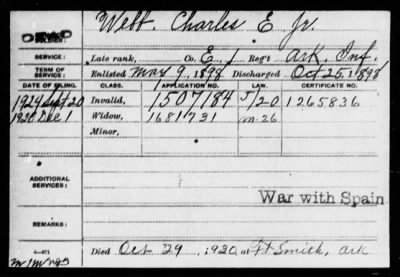 Webb. Charles E Jr.
DEAD
SERVICE: Late rank, Co. E 1 Reg't Ark. Inf.
TERM OF SERVICE: Enlisted May 9, 1898 Discharged Oct 25, 1898
DATE OF FILING. CLASS. APPLICATION NO. LAW. CERTIFICATE NO.
1924 Sept 20 Invalid, 1507184 5/20 1265836
1930 Dec 1 Widow, 1681731 M-26
Minor,
ADDITIONAL SERVICES:
War with Spain
REMARKS:
Died Oct 29, 1930, at Ft Smith, Ark